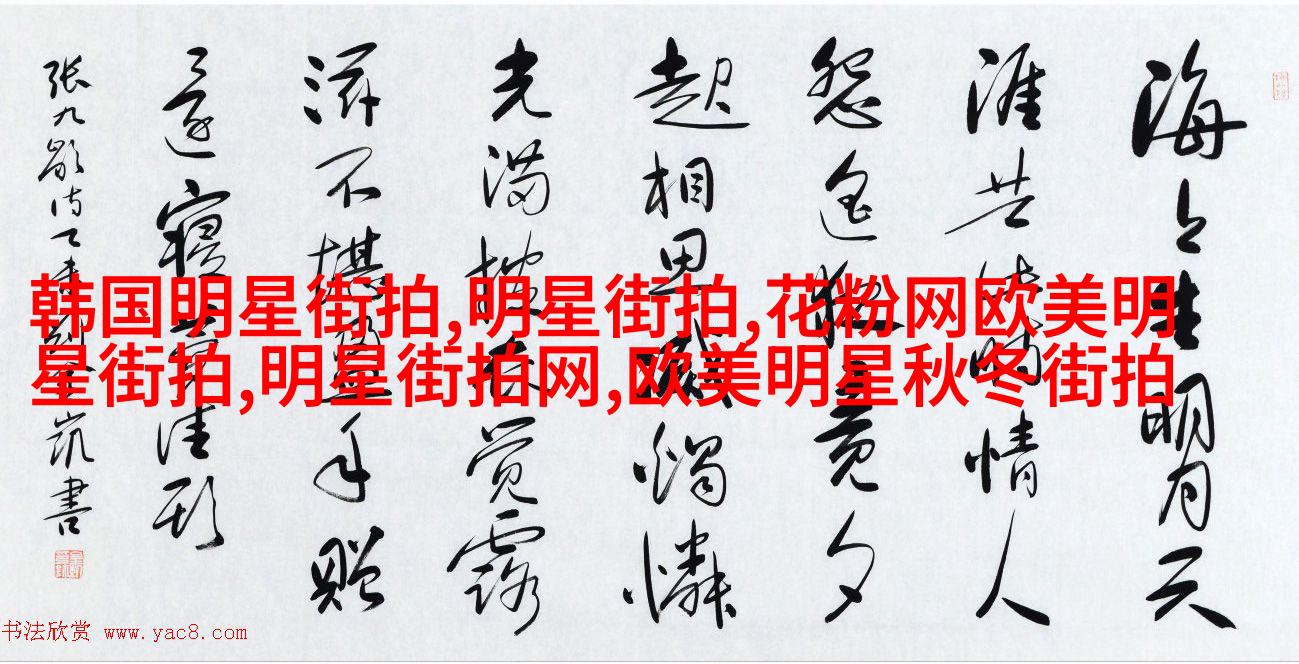 海上生明月天
涯共此時情人
怨遥夜竟夕
起相思滅燭憐
光满披衣觉露
滋不堪盈手赠
还寝夢佳期
张九龄诗乙未凯書
韩国明星街拍,明星街拍,花粉网欧美明
星街拍,明星街拍网,欧美明星秋冬街拍
书法欣赏 www.yac8.com